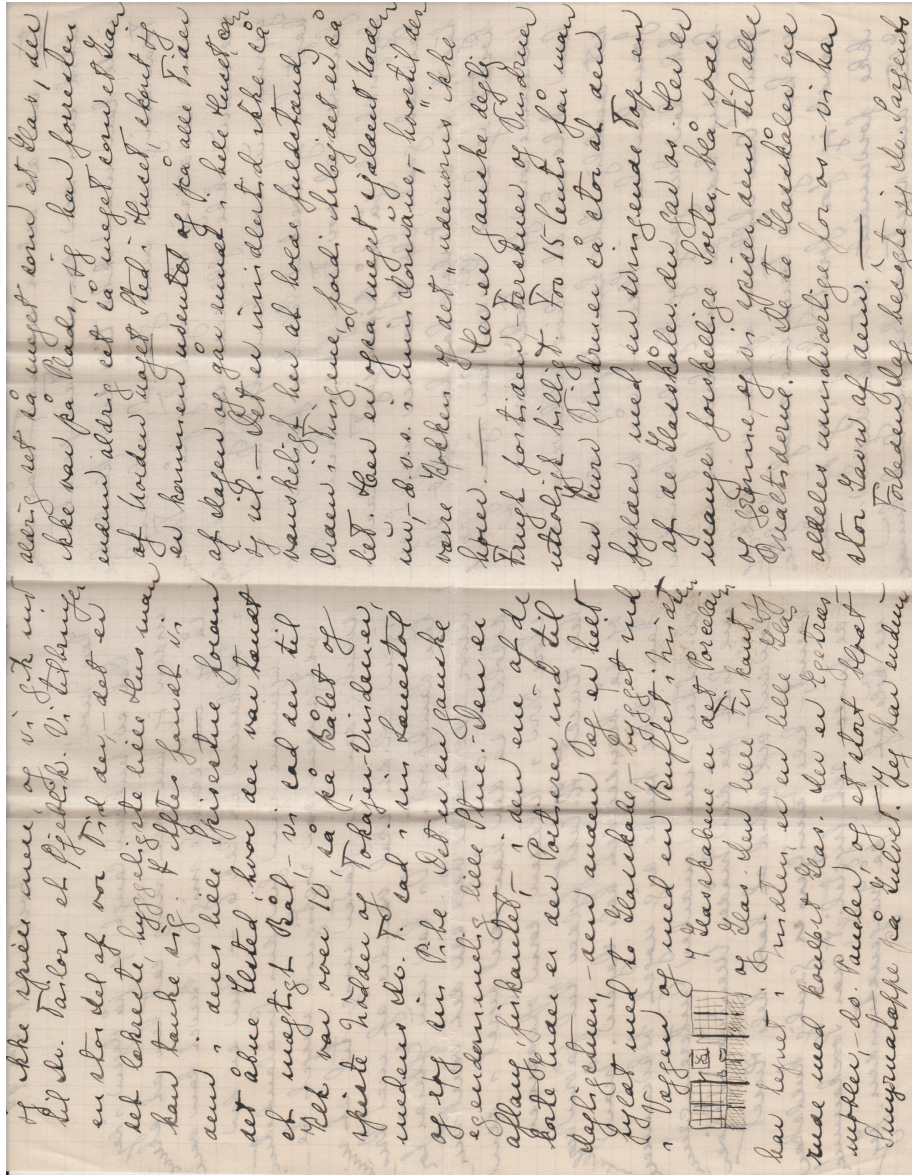 og ikke spille mere, og vi gik ind
til Dr. Tailors et Øjeblik. Vi tilbringer
en stor del af vor Tid der, – det er
det lækreste, hyggeligste lille Hus man
kan tænke sig. I Aftes fandt vi
dem i deres lille Spisestue foran
det åbne Ildsted, hvor der var tændt
et mægtigt Bål, – vi sad der til
Klk. var over 10, så på Bålet og
spiste Nødder og Tokajer-Vindruer,
medens Dr. T. sad i sin Lænestol
og røg sin Pibe. Det er en ganske
ejendommelig lille Stue. – Den er
aflang firkantet, – i den ene af de
korte Ender er der Portierer ind til
Dagligstuen, – den anden Væg er helt
fyldt med to Glasskabe – bygget ind
i Væggen og med en Buffet i Midten
I Glasskabene er det Porcelæn
og Glas. Den lille Firkant, jeg
har tegnet i Midten, er en lille Glas
rude med kouleurt Glas. Der er Egetræs
møbler, – do. Paneler, og et stort blødt
Smyrnatæppe på Gulvet. Jeg har endnu
aldrig set så meget som et Glas, der
ikke var på Plads, – og har foresten
endnu aldrig set så meget som et Gran
af Uorden noget Sted i Huset, skønt jeg
er kommen uventet på alle Tider
af Dagen og går rundt i hele Huset som
jeg vil. – Det er imidlertid ikke så
vanskeligt her at holde fuldstændig
Orden i Tingene, fordi Arbejdet er så
let. Her er også meget pålænt Orden
nu, – d.v.s. i min Domæne, – hvortil des
værre Køkken og det "udenoms" ikke
hører. – Her er ganske dejlig
Frugt for tiden. Ferskner og Vindruer
utroligt billigt. For 15 Cents får man
en Kurv Vindruer så stor at den
fylder med en svingende Top en
af de Glasskåle du gav os. Her er
mange forskellige Sorter, blå, røde
og grønne, og vi spiser dem til alle
Måltiderne. – De to Glasskåle er ene
aldeles uundværlige for os – vi har
stor Gavn af dem. –
Forleden Dag besøgte vi Dr. Sargents